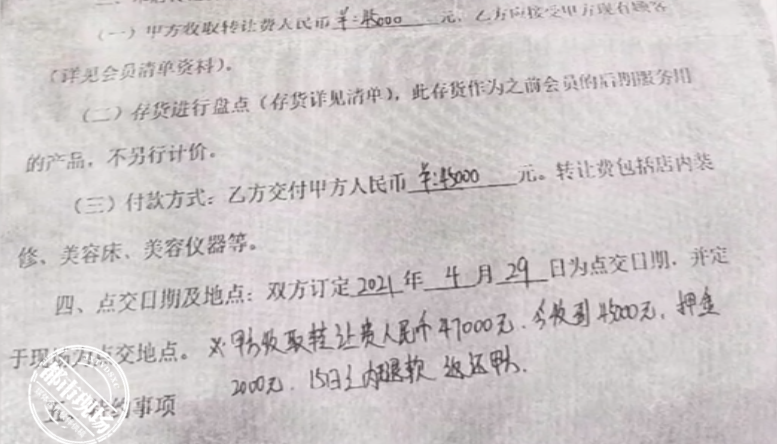 （一）甲方收取转让费人民币 ￥:45000 元，乙方应接受甲方现有顾客
（详见会员清单资料）。
（二）存货进行盘点（存货详见清单），此存货作为之前会员的后期服务用
的产品，不另行计价。
（三）付款方式：乙方交付甲方人民币 ￥:45000 元。转让费包括店内装
修、美容床、美容仪器等。
四、点交日期及地点：双方订定 2021 年 4 月 29 日为点交日期，并定
于现场为点交地点。 ※甲方收取转让费人民币47000元.今收到45000元，押金
2000元.15日之内退款 返还甲方.
五、特约事项
都市现场